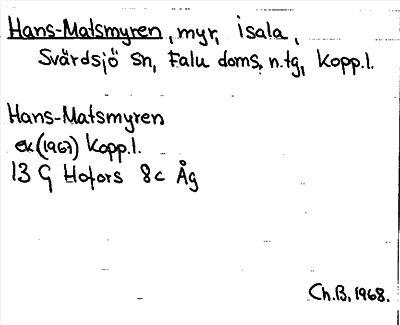 Hans-Matsmyren, myr, Isala,
Svärdsjö sn, Falu doms. n.tg, Kopp.l.
Hans-Matsmyren
ek (1967) Kopp.l.
13 G Hofors 8c Åg
Ch.B, 1968.